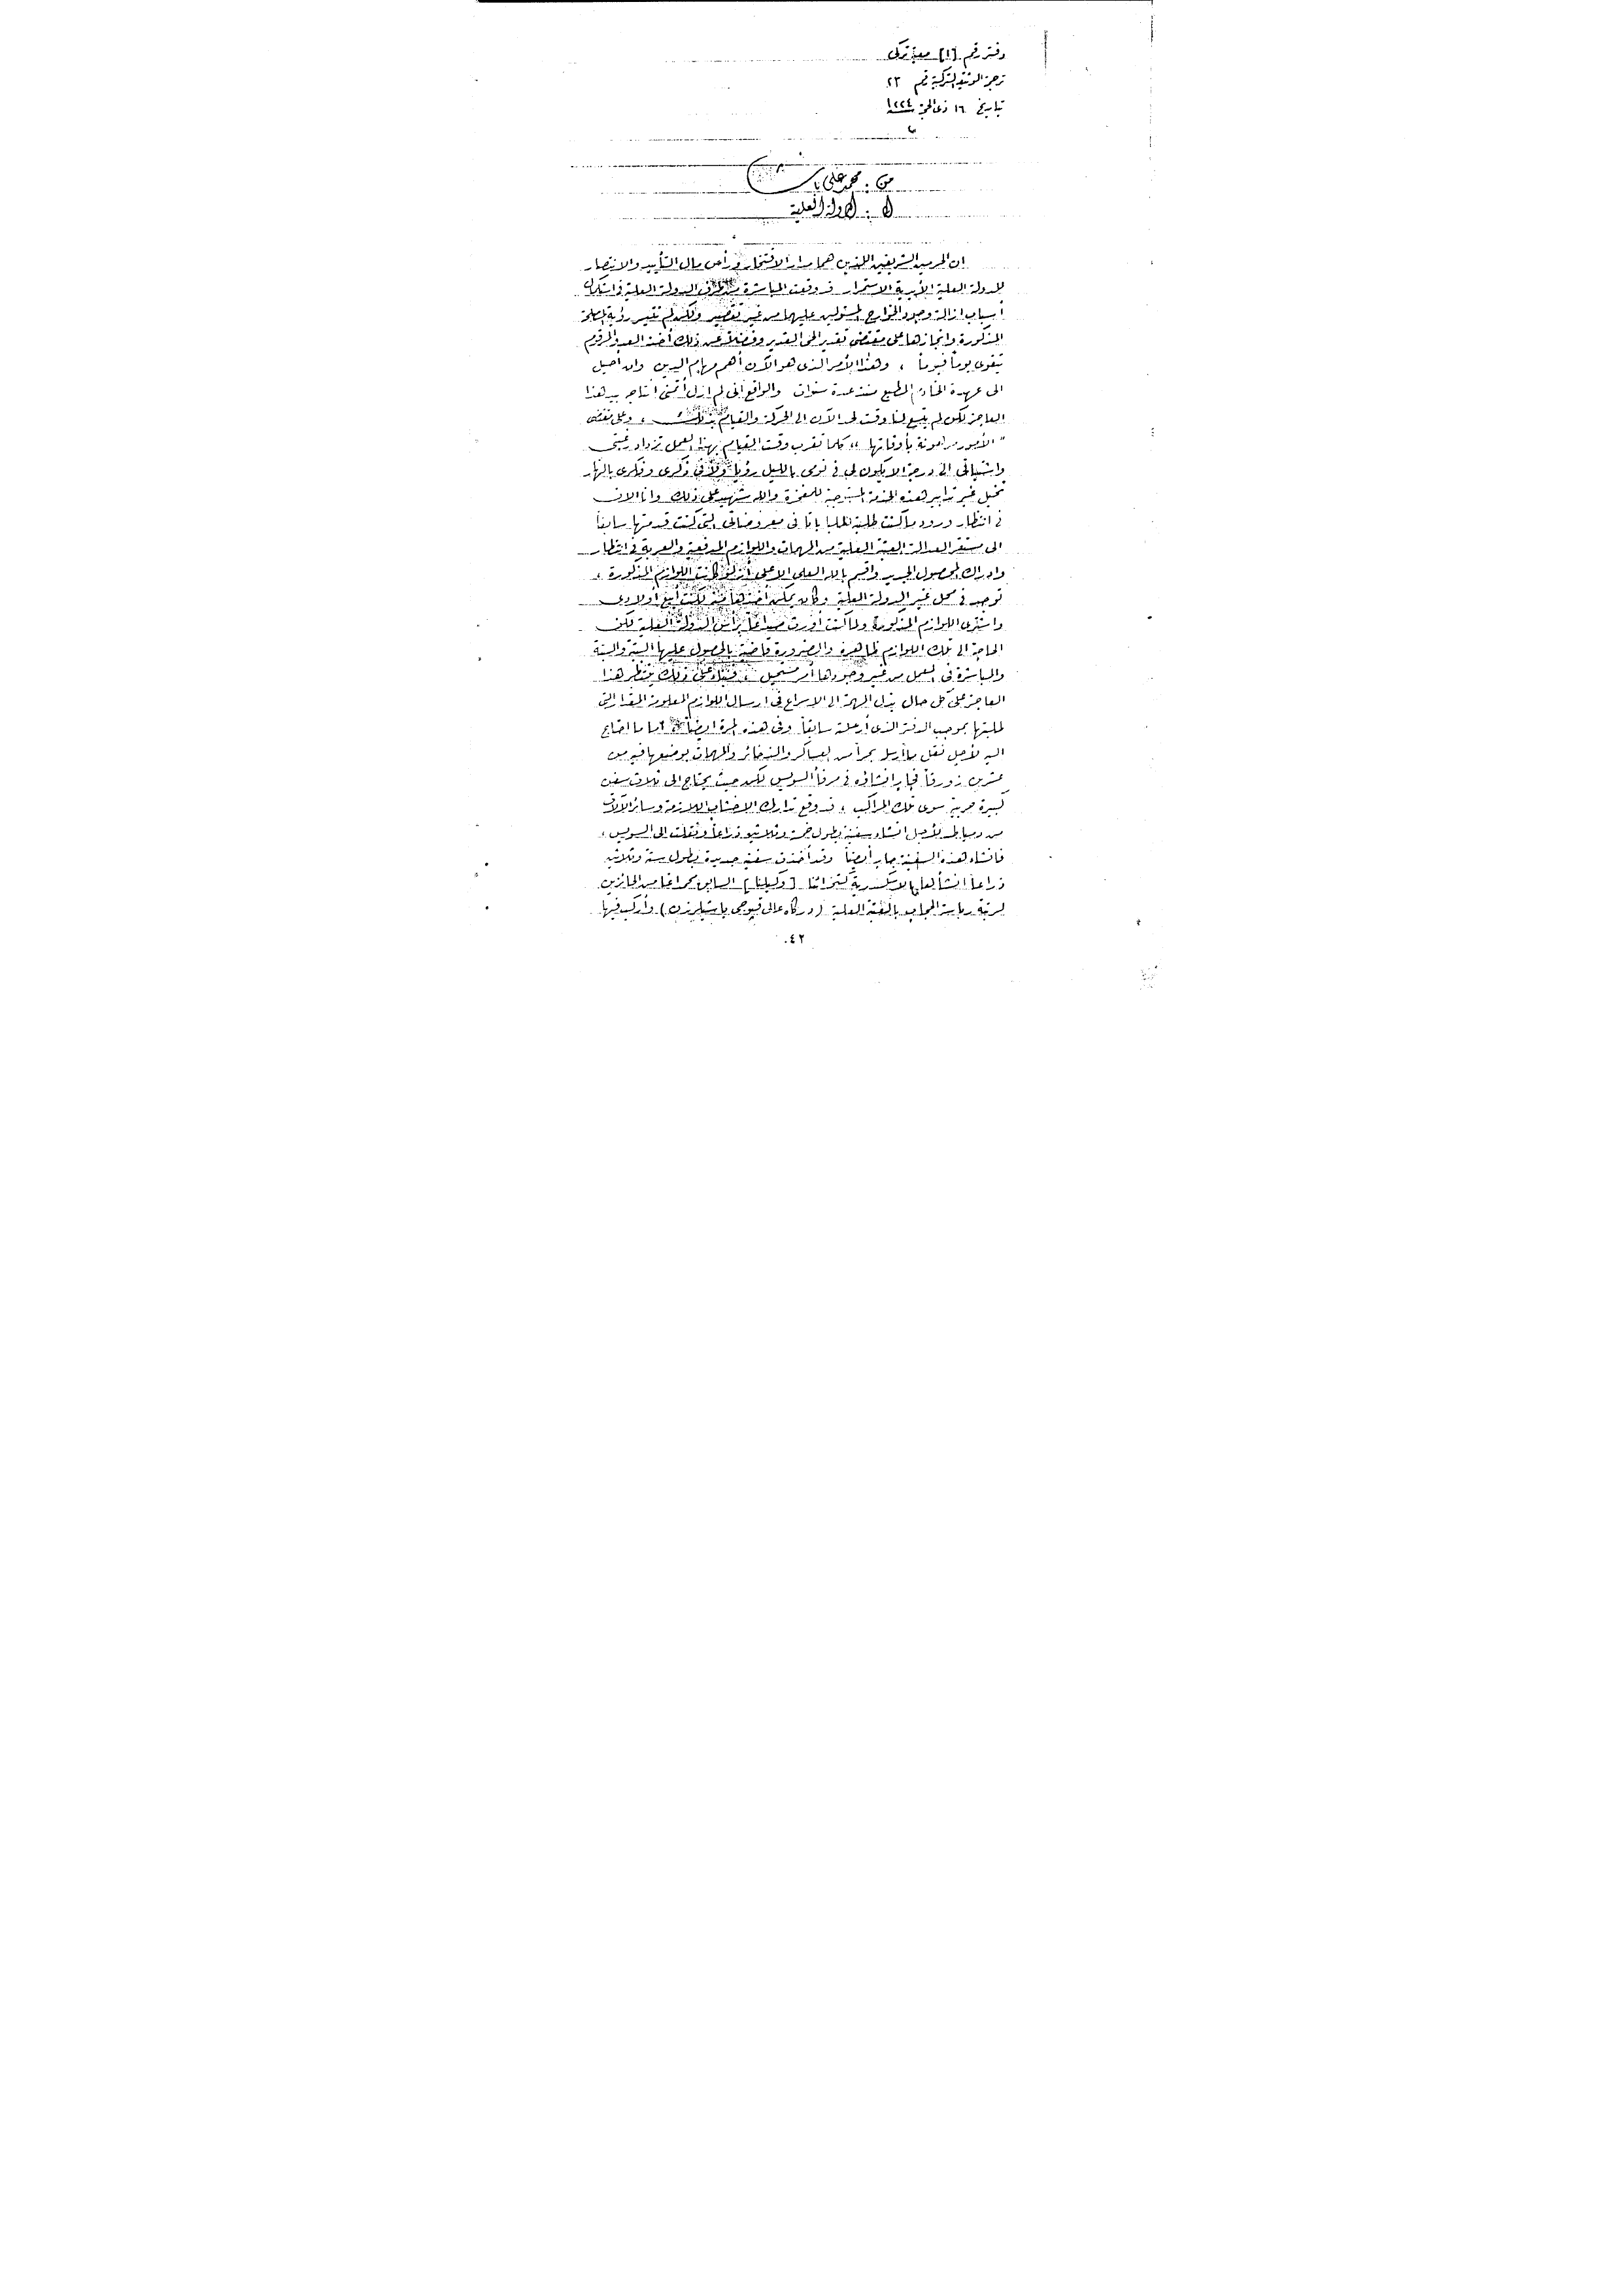 دفتر رقم [١] معية تركى
ترجمة الوثيقة التركية رقم ٢٣
بتاريخ ١٦ ذى الحجة سنة ١٢٢٤
من : محمد على باشا
الى : الدولة العلية
ان الحرمين الشريفين اللذين هما مدار الافتخار ورأس مال التأييد والانتصار
للدولة العلية الأبدية الاستمرار قد وقعت المباشرة من طرف الدولة العلية فى استكمال
أسباب ازالة وجود الخوارج المستولين عليهما من غير تقصير ولكن لم تتيسر رؤية المصلحة
المذكورة وانجازها على مقتضى تقدير الحى القدير وفضلاً عن ذلك أخذ العدو المرقوم
يتقوى يوماً فيوماً ، وهذا الأمر الذى هو الآن أهم مهام الدين وان أحيل
الى عهدة الخادم المطيع منذ عدة سنوات والواقع انى لم ازل أتمنى انتاجه بيد هذا
العاجز لكن لم يتسع لنا وقت لحد الآن الى الحركة والقيام بذلك ، وعلى مقتضى
" الأمور مرهونة بأوقاتها ،، كلما تقرب وقت القيام بهذا العمل تزداد رغبتى
واشتياقى الى درجة الا يكون لى فى نومى بالليل رؤيا ولا فى ذكرى وفكرى بالنهار
تخيل غير تدابير هذه الخدمة المستوجبة للمفخرة والله شهيد على ذلك وانا الان
فى انتظار ورود ما كنت طلبته فى معروضاتى التى كنت قدمتها سابقاً
الى مستقر العدالة العتبة العلية من المهمات واللوازم المدفعية والعربة فى انتظار
وادراك المحصول الجديد واقسم بالله العلى الاعلى أن لو كانت اللوازم المذكورة ،
توجد فى محل غير الدولة العلية وكان يمكن أخذها منه لكنت أبيع أولادى
واشترى اللوازم المذكورة ولما كنت أورث صداعاً برأس الدولة العلية لكن
الحاجة الى تلك اللوازم ظاهرة والضرورة قاضية بالحصول عليها البتة والبتة
والمباشرة فى العمل من غير وجودها أمر مستحيل ، فبناء على ذلك ينتظر هذا
العاجز على كل حال بذل الهمة الى الاسراع فى ارسال اللوازم المعلومة المقدار التى
طلبتها بموجب الدفتر الذى أرسلته سابقاً وفى هذه المرة ايضاً ، أما ما احتاج
اليه لأجل نقل ما أرسل بحراً من العساكر والذخائر والمهمات بوضعها فيه من
عشرين زورقاً فجار انشاؤه فى مرفأ السويس لكن حيث يحتاج الى ثلاث سفن
كبيرة حربية سوى تلك المراكب ، قد وقع تدارك الاخشاب اللازمة وسائر الآلات
من دمياط لأجل انشاء سفينة بطول خمسة وثلاثين ذراعاً ونقلت الى السويس ،
فانشاء هذه السفينة جار أيضاً وقد أخذت سفينة جديدة بطول ستة وثلاثين
ذراعاً انشأها بالاسكندرية كتخدائنا [وكيلنا] السابق محرم اغا من الحائزين
لرتبة رياسة الحجاب بالعتبة العلية (دركاه عالى قبوجى باشيلرندن) وأركب فيها
٤٢٠